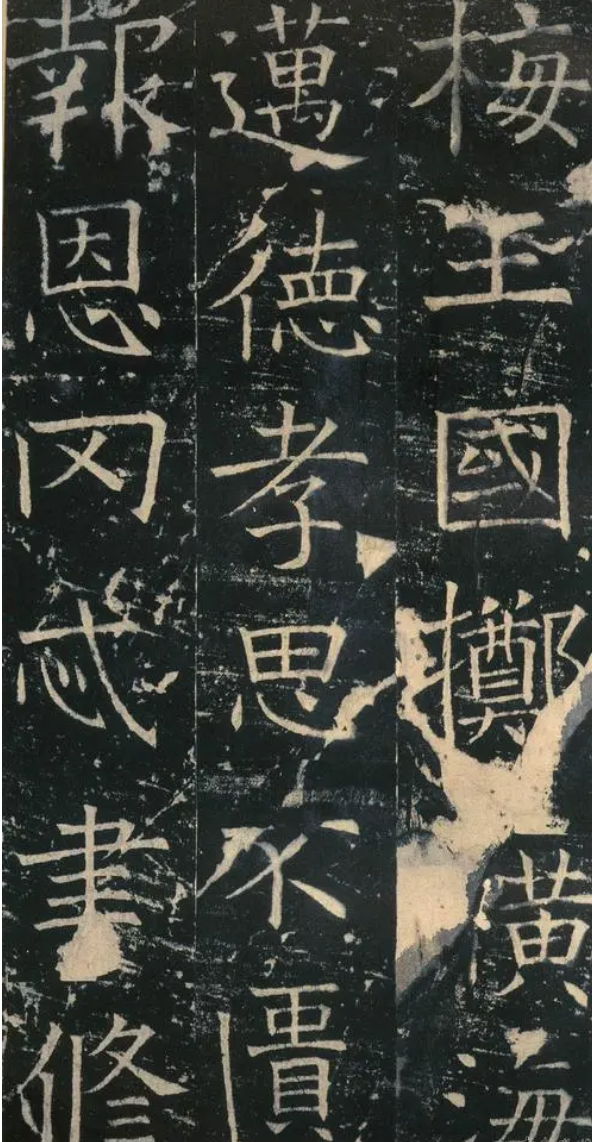 梅王國擲黄海
邁德孝思不匱
報恩罔忒書修